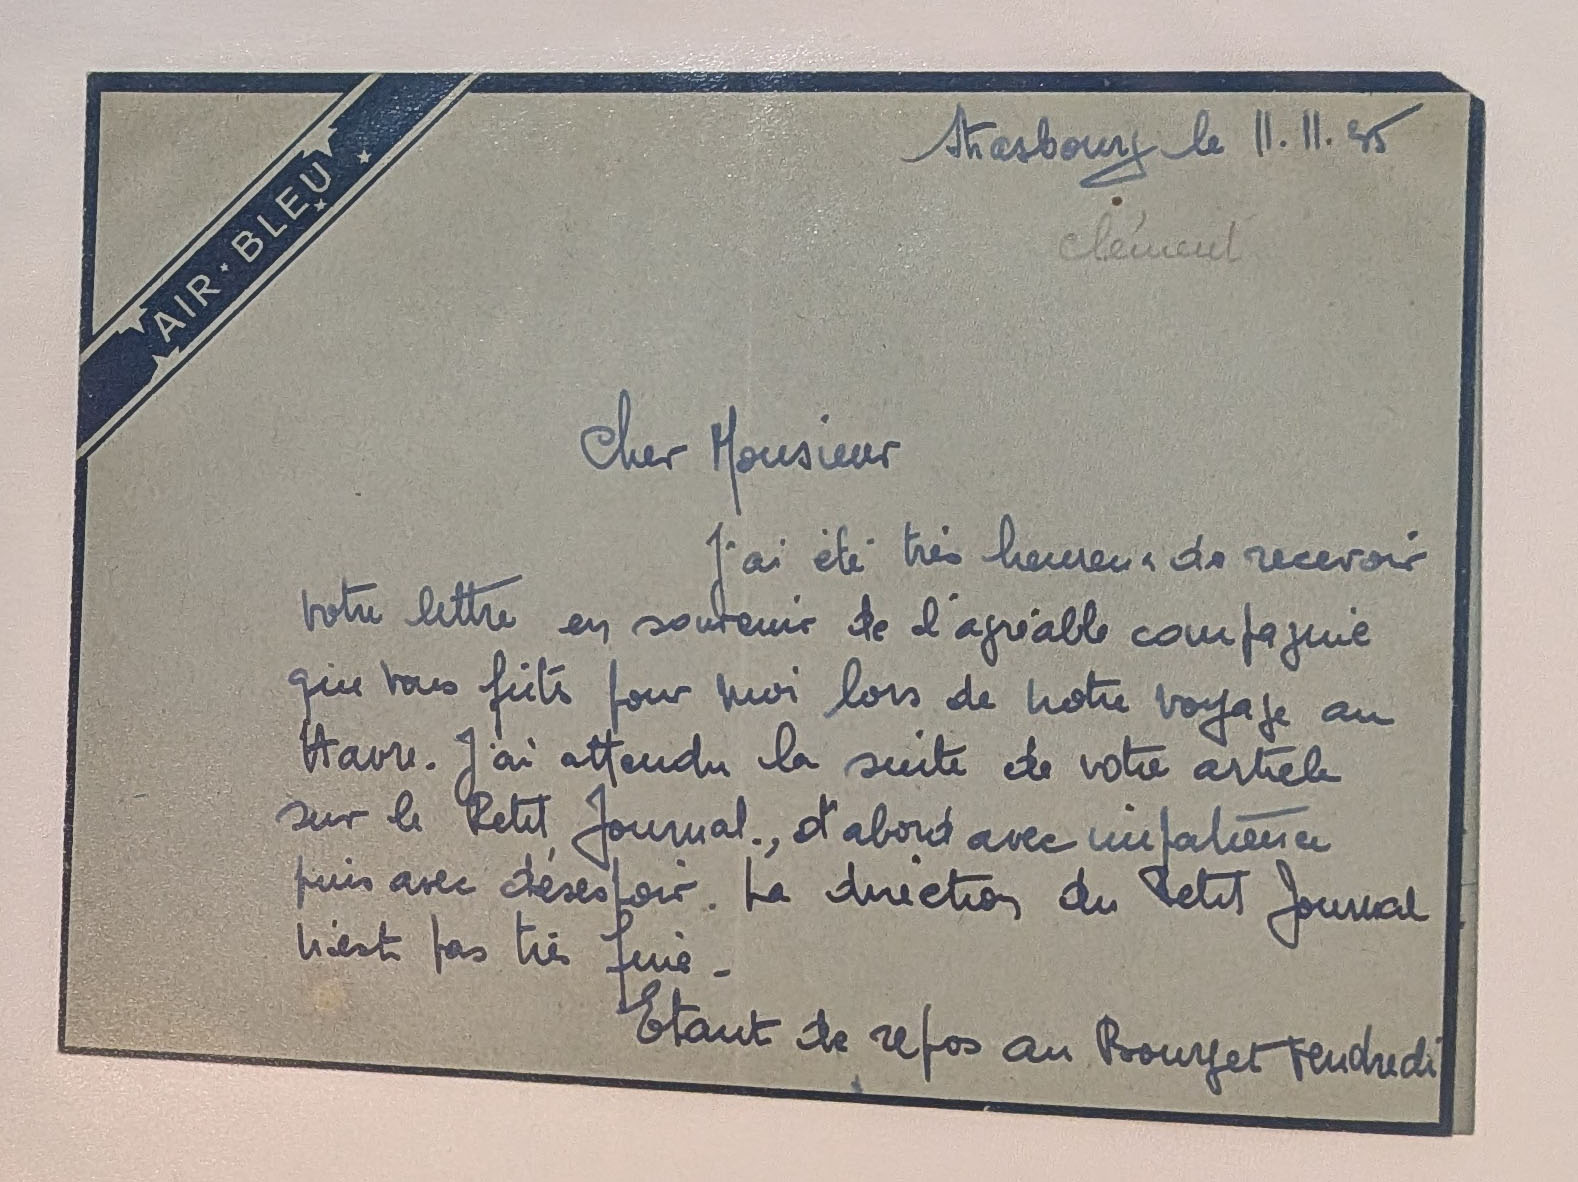 AIR·BLEU
Strasbourg le 11.11.35
clément
Cher Monsieur
J'ai été très heureux de recevoir
votre lettre en souvenir de l'agréable compagnie
que vous fûtes pour moi lors de notre voyage au
Havre. J'ai attendu la suite de votre article
sur le Petit Journal., d'abord avec impatience
puis avec désespoir. La direction du Petit Journal
n'est pas très fine -
Etant de repos au Bourget vendredi